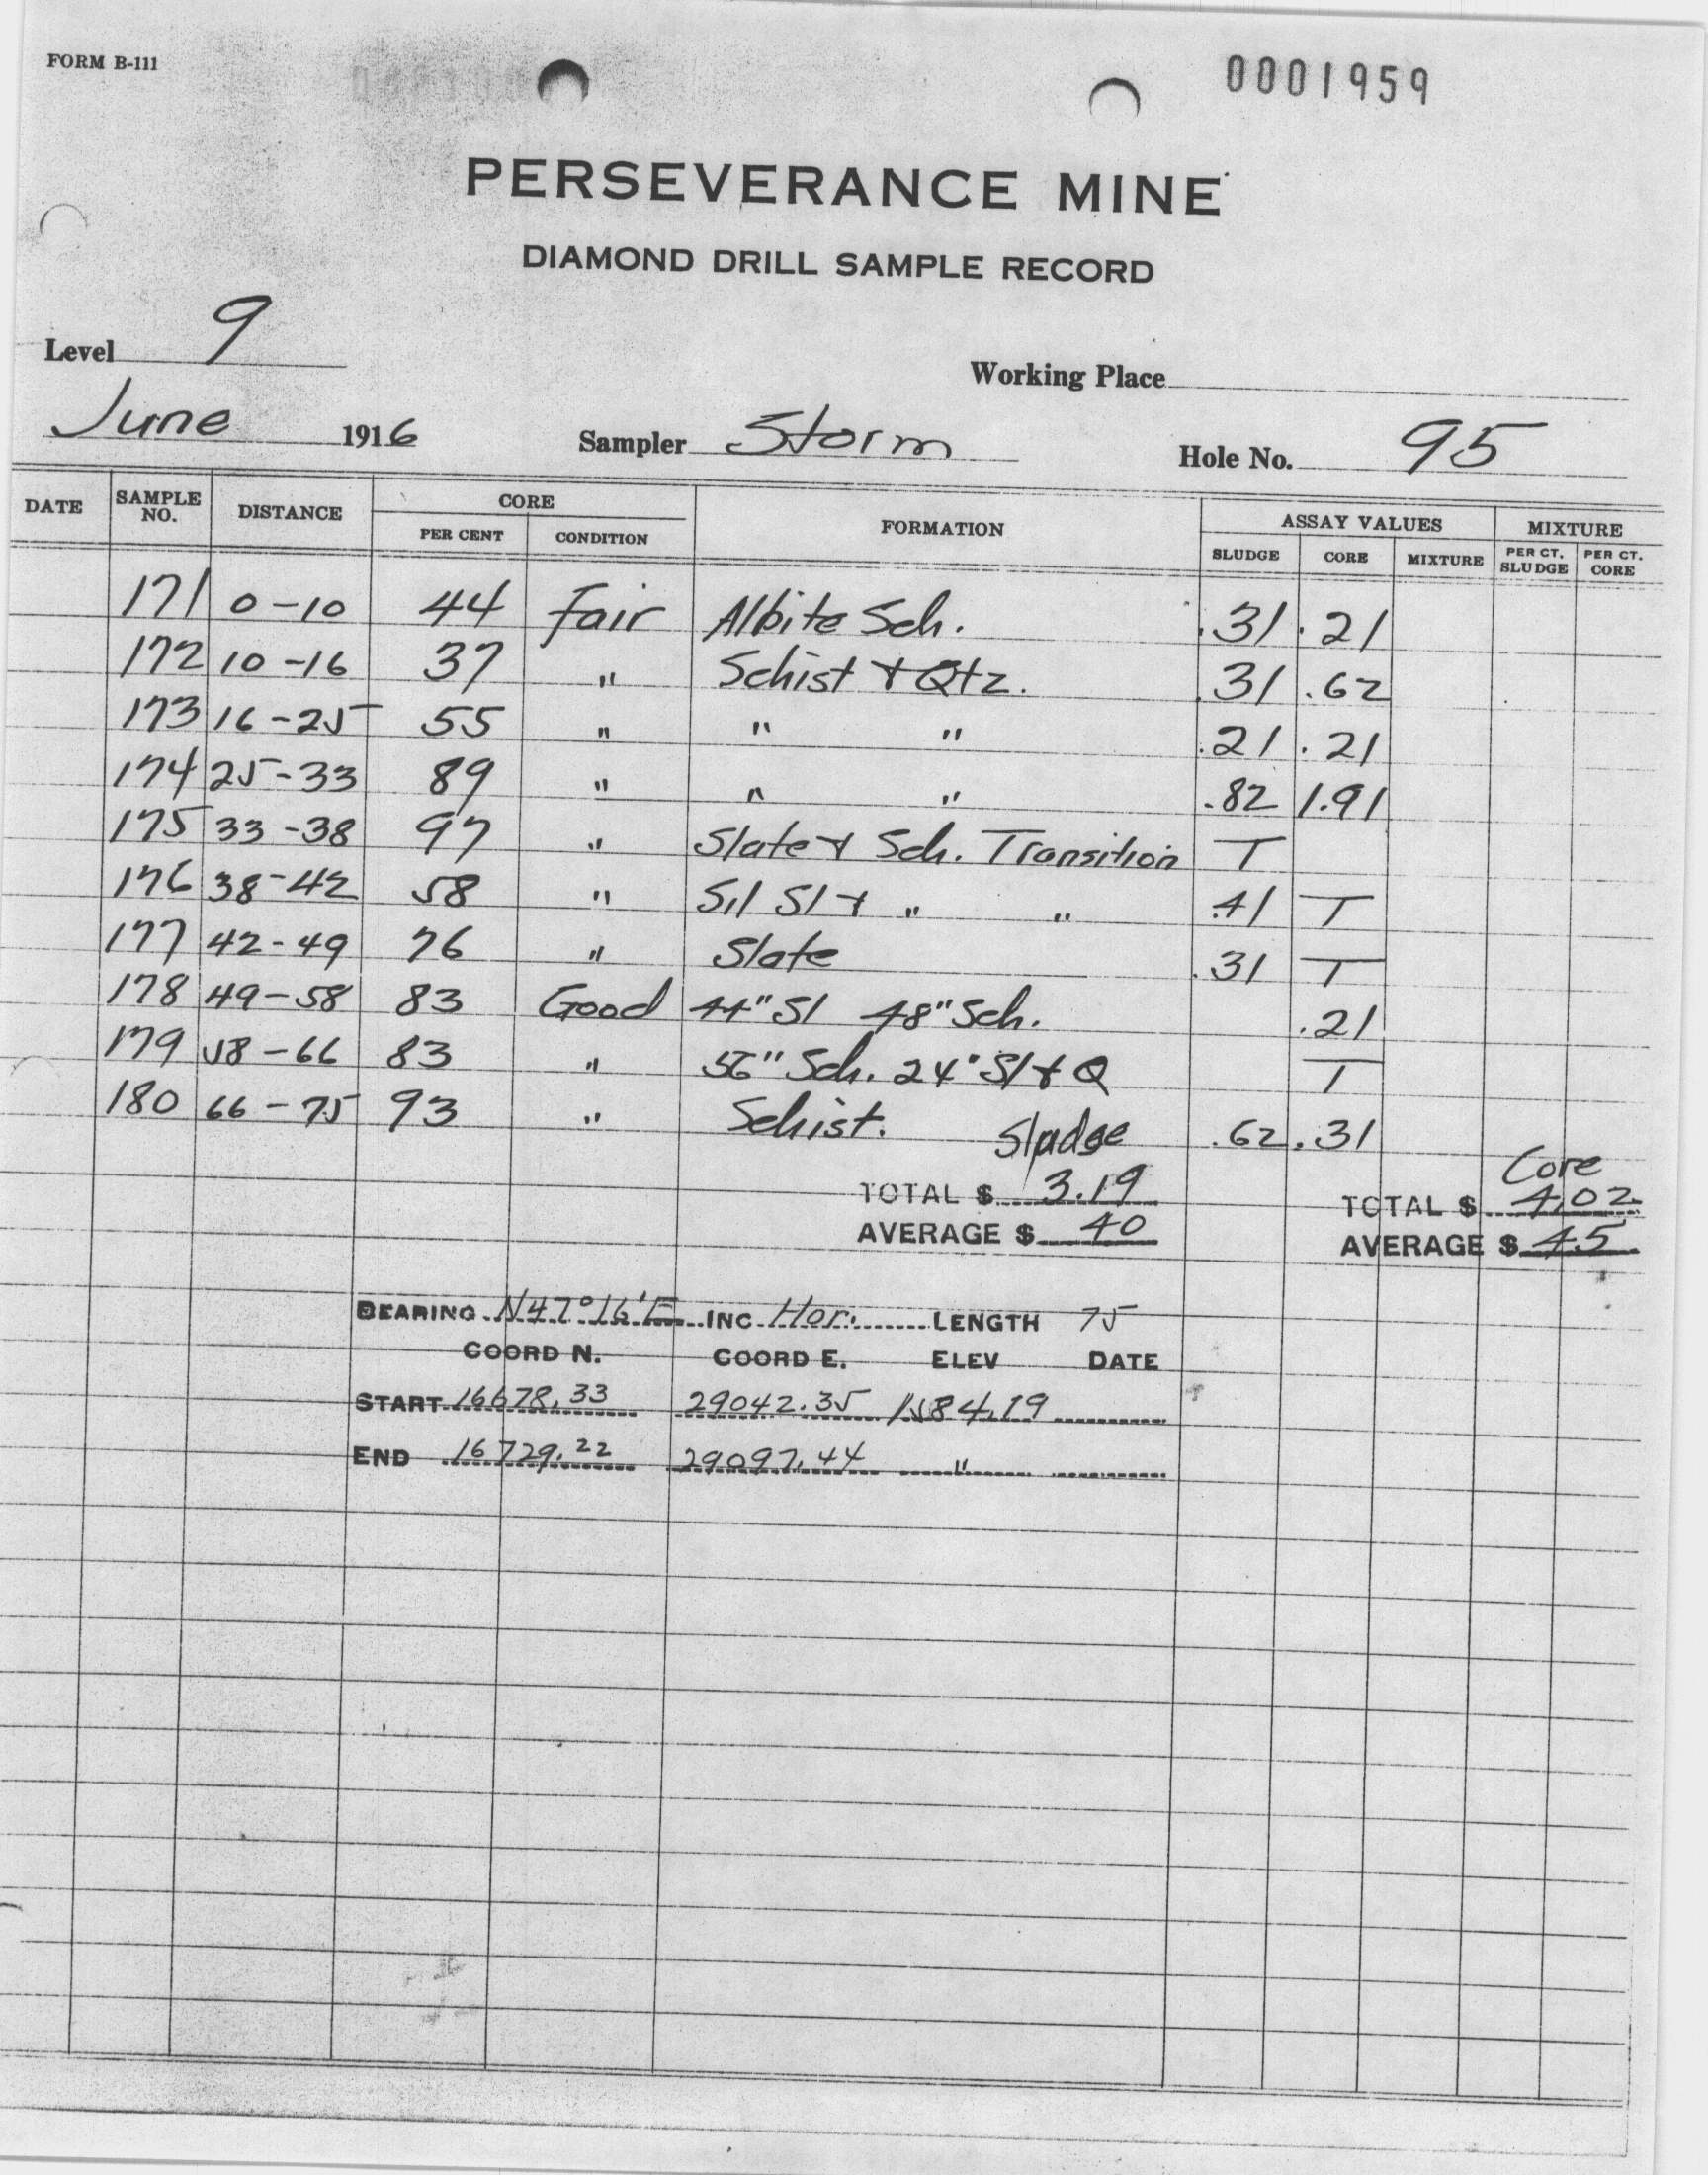 FORM B-111
0001959
PERSEVERANCE MINE
DIAMOND DRILL SAMPLE RECORD
Level 9
Working Place
June 1916 Sampler Storm Hole No. 95
DATE SAMPLE NO. DISTANCE CORE FORMATION ASSAY VALUES MIXTURE
PER CENT CONDITION SLUDGE CORE MIXTURE PER CT. SLUDGE PER CT. CORE
171 0-10 44 Fair Albite Sch. .31 .21
172 10-16 37 " Schist & Qtz. .31 .62
173 16-25 55 " " " .21 .21
174 25-33 89 " " " .82 1.91
175 33-38 97 " Slate & Sch. Transition T
176 38-42 58 " Sil Sl & " " .41 T
177 42-49 76 " Slate .31 T
178 49-58 83 Good 44" Sl 48" Sch. .21
179 58-66 83 " 56" Sch. 24" Sl & Q T
180 66-75 93 " Schist. .62 .31
Sludge Core
TOTAL $ 3.19 TOTAL $ 4.02
AVERAGE $ 40 AVERAGE $ 45
BEARING N47°16'E INC Hor. LENGTH 75
COORD N. COORD E. ELEV DATE
START 16678.33 29042.35 1584.19
END 16729.22 29097.44 "